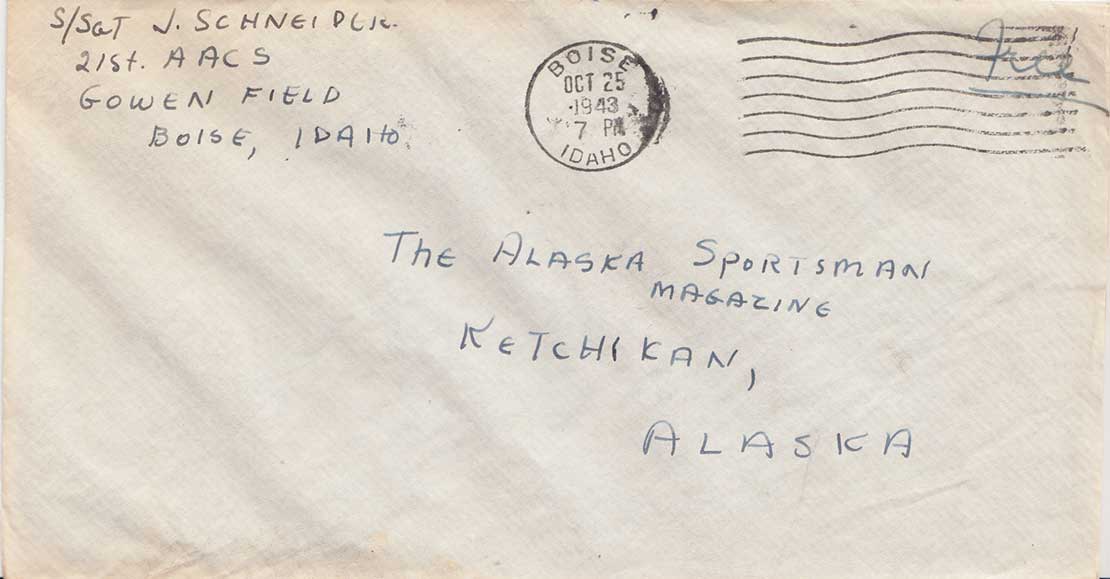 S/Sgt J. SCHNEIDER.
21st. AACS
GOWEN FIELD
BOISE, IDAHO.
BOISE
OCT 25
1943
7 PM
IDAHO
Free
The ALASKA SPORTSMAN
MAGAZINE
KETCHIKAN,
ALASKA